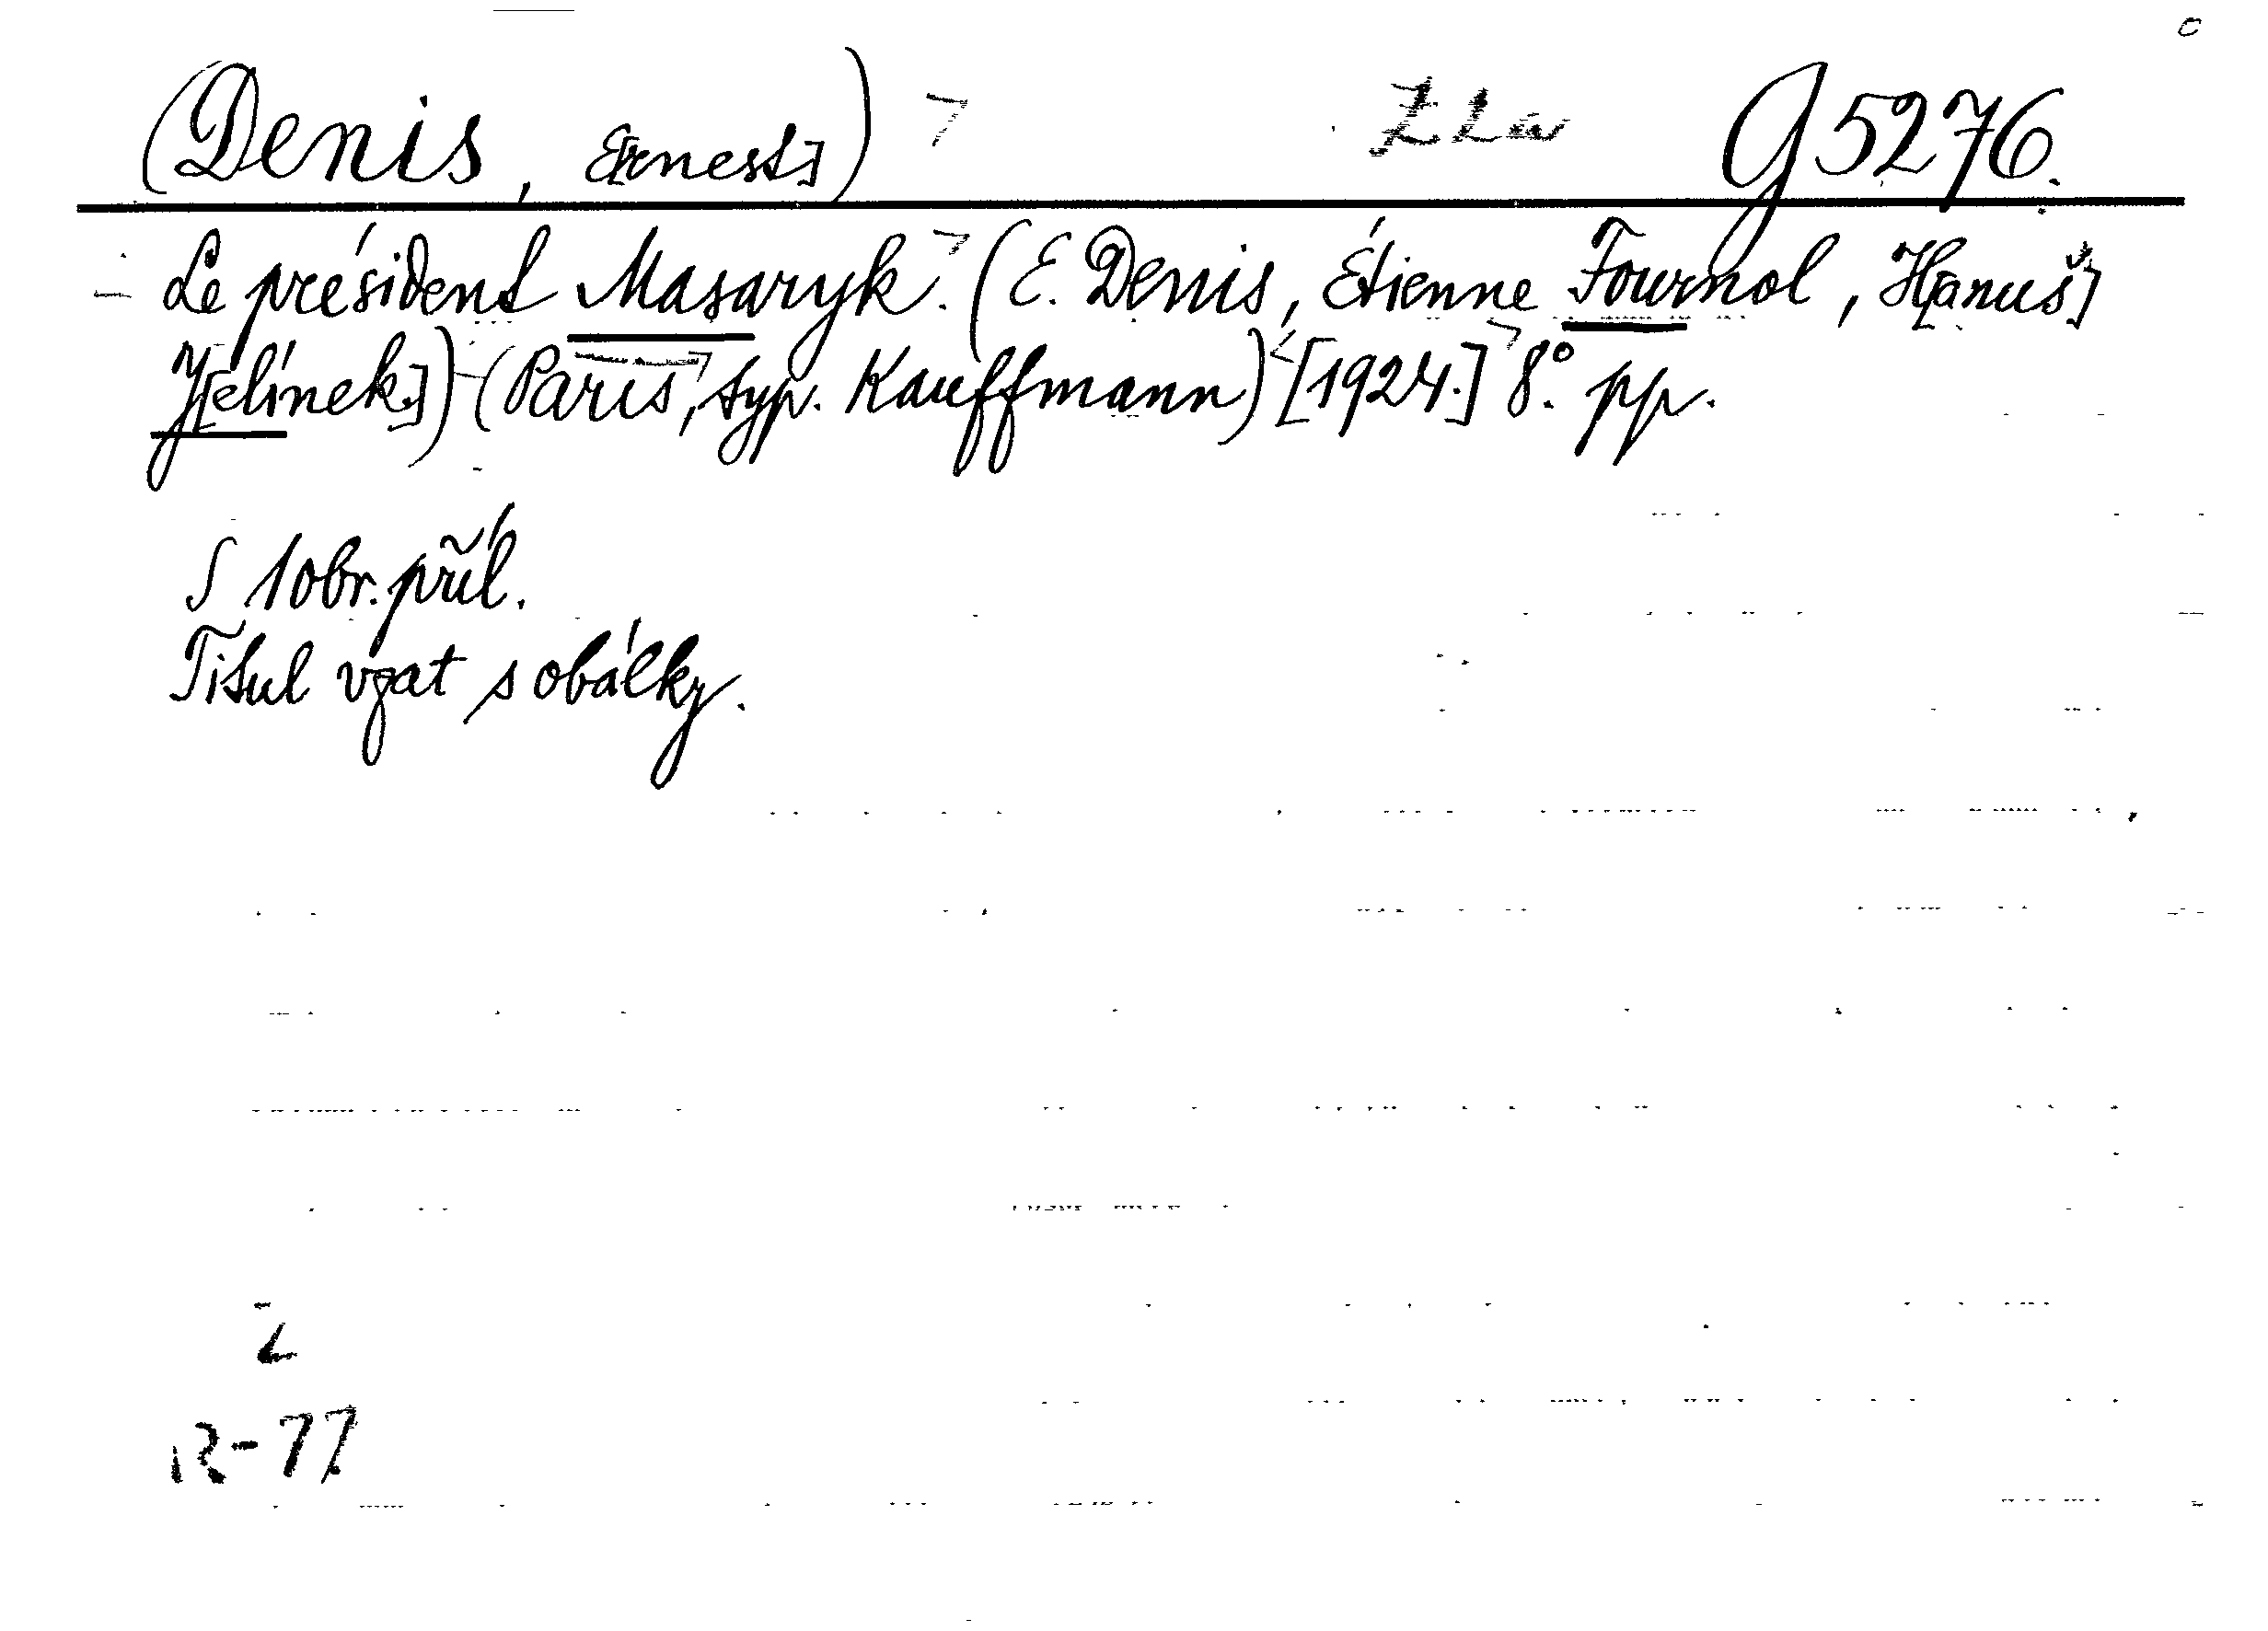 (Denis, E[rnest]) G 5276.
Le président Masaryk. (E. Denis, Étienne Fournol, H[anuš]
J[elínek.]) (Paris, typ. Kauffmann) [1924.] 8°. pp.
S 1 obr. příl.
Titul vzat s obálky.
R-77